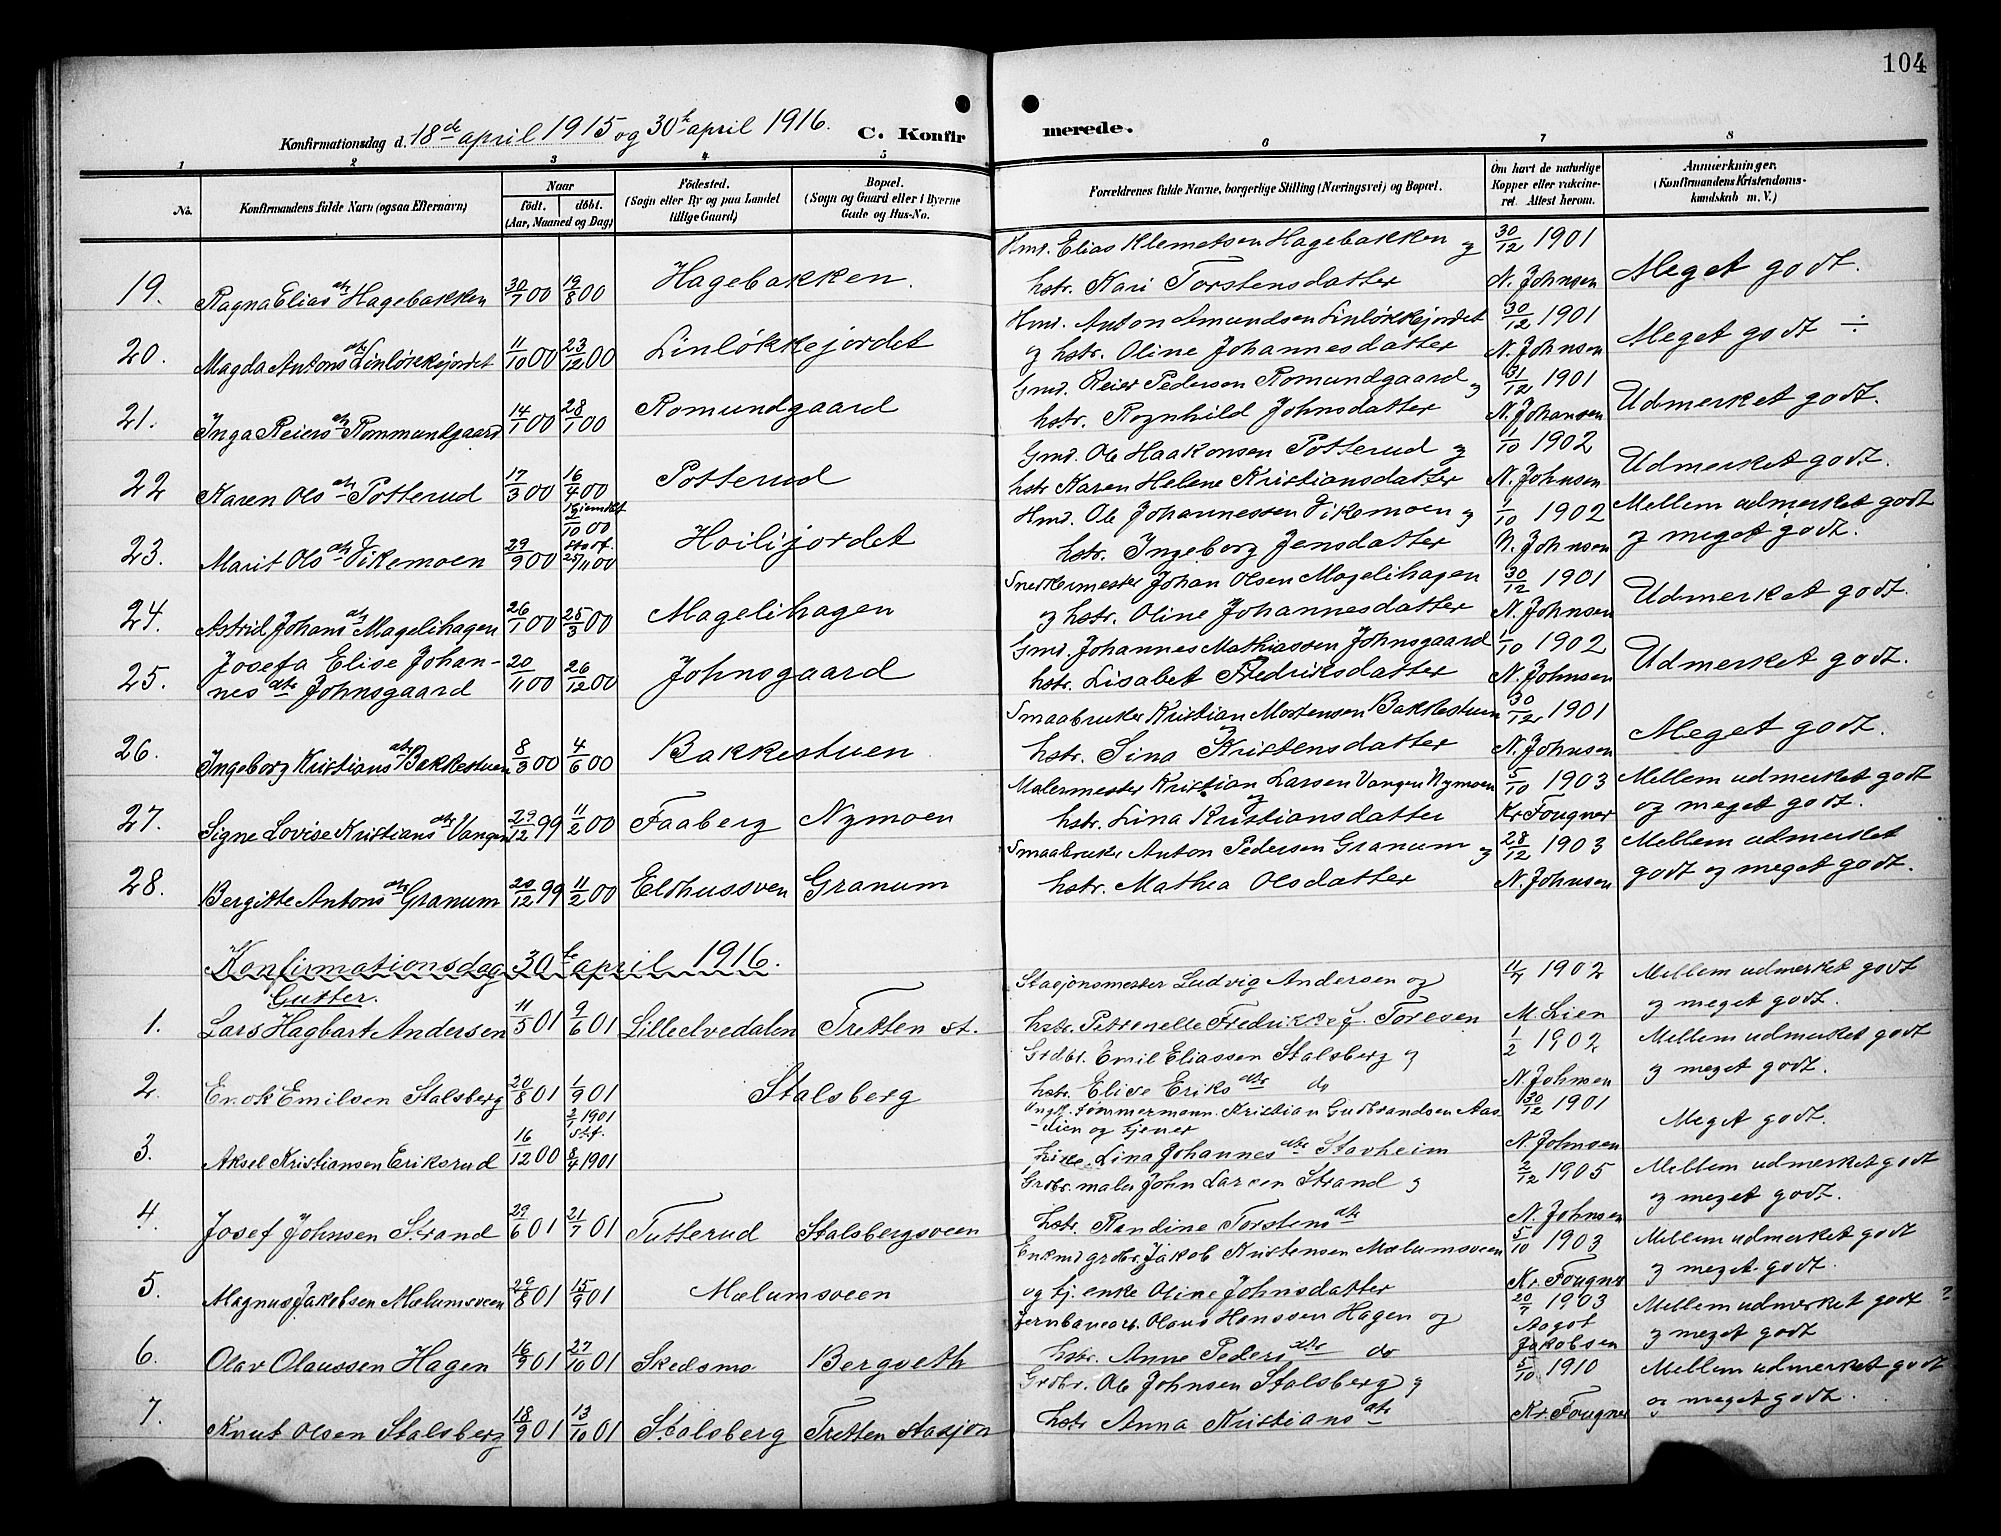 104
Konfirmationsdag d. 18de april 1915 og 30te april 1916. C. Konfirmerede.
1 2 3 4 5 6 7 8
No. Konfirmandens fulde Navn (ogsaa Efternavn) Naar født. døbt. (Aar, Maaned og Dag) Fødested. (Sogn eller By og paa Landet tillige Gaard) Bopæl. (Sogn og Gaard eller i Byerne Gade og Hus-No. Forældrenes fulde Navne, borgerlige Stilling (Næringsvei) og Bopæl. Om havt de naturlige Kopper eller vakcineret. Attest herom. Anmerkninger. (Konfirmandens Kristendomskundskab m. V.)
19. Ragna Elias dtr Hagebakken 30/7 00 19/8 00 Hagebakken. Hmd. Elias Klemetsen Hagebakken og
hstr. Kari Torstensdatter 30/12 1901 N. Johnsen Meget godt.
20. Magda Antons dtr Linløkkejordet 11/10 00 23/12 00 Linløkkejordet Hmd. Anton Amundsen Linløkkejordet
og hstr. Oline Johannesdatter 30/12 1901 N. Johnsen Meget godt ÷
21. Inga Reiers dtr Rommundgaard 14/1 00 28/1 00 Romundgaard Gmd. Reier Pedersen Romundgaard og
hstr. Rognhild Johnsdatter 31/12 1901 N. Johansen Udmerket godt.
22 Karen Ols dtr Potterud 17/3 00 16/4 00 Potterud Gmd. Ole Haakonsen Potterud og
hstr Karen Helene Kristiansdatter 1/10 1902 N. Johnsen Udmerket godt.
23. Marit Ols dtr Vikemoen 29/9 00 hjemdøbt 2/10 00 stadf. 25/11 00 Hoilijordet Hmd. Ole Johannessen Vikemoen og
hstr. Ingeborg Jensdatter 1/10 1902 N. Johnsen Mellem udmerket godt
og meget godt.
24. Astrid Johans dtr Magelihagen 26/1 00 25/3 00 Magelihagen Snekkermester Johan Olsen Magelihagen
og hstr. Oline Johannesdatter 30/12 1901 N. Johnsen Udmerket godt.
25. Josefa Elise Johan-
nes dtr Johnsgaard 20/11 00 26/12 00 Johnsgaard Gmd. Johannes Mathiassen Johnsgaard
hstr. Lisabet Fredriksdatter 1/10 1902 N. Johnsen Udmerket godt.
26. Ingeborg Kristians dtr Bakkestuen 8/3 00 4/6 00 Bakkestuen Smaabruker Kristian Mortensen Bakkestuen
hstr. Sina Kristensdatter 30/12 1901 N. Johnsen Meget godt.
27. Signe Lovise Kristians dtr Vangen 29/12 99 11/2 00 Faaberg Nymoen Malermester Kristian Larsen Vangen Nymoen
og hstr. Lina Kristiansdatter 5/10 1903 Kr Fougner Mellem udmerket godt
og meget godt.
28. Bergitte Antons dtr Granum 20/12 99 11/2 00 Eldhussven Granum Smaabruker Anton Pedersen Granum og
hstr. Mathea Olsdatter 28/12 1903 N. Johnsen Mellem udmerket
godt og meget godt.
Konfirmationsdag 30te april 1916.
Gutter.
1. Lars Hagbart Andersen 11/5 01 9/6 01 Lilleelvedalen Tretten st. Stasjonsmester Ludvig Andersen og
hstr. Petrenelle Fredrikke f. Toresen 11/7 1902 M. Lien Mellem udmerket godt
og meget godt.
2. Enok Emilsen Stalsberg 20/8 01 1/9 01 Stalsberg Grdbr. Emil Eliassen Stalsberg og
hstr. Elise Eriks dtr do 1/2 1902 N. Johnsen Mellem udmerket godt
og meget godt.
3. Aksel Kristiansen Eriksrud 16/12 00 2/1 1901 Stf. 8/4 1901 Ungk. tømmermann Kristian Gudbrandsen Aas-
lien og tjener
pike Lina Johannes dtr Stavheim 30/12 1901 N. Johnsen Meget godt.
4. Josef Johnsen Strand 29/6 01 21/7 01 Tutterud Stalsbergsveen Grdbr. maler John Larsen Strand og
hstr. Randine Torstens dtr 2/12 1905 N. Johnsen Mellem udmerket godt
og meget godt.
5. Magnus Jakobsen Mælumsveen 29/8 01 15/9 01 Mælumsveen Enkmd grdbr. Jakob Kristensen Mælumsveen
og tj. enke Oline Johnsdatter 5/10 1903 Kr. Fougner Mellem udmerket godt
og meget godt.
6. Olav Olaussen Hagen 16/9 01 27/10 01 Skedsmo Bergseth Jernbanearb. Olaus Hanssen Hagen og
hstr. Anne Peders dtr do 20/7 1903 Aagot Jakobsen Mellem udmerket godt
og meget godt
7. Knut Olsen Stalsberg 18/9 01 13/10 01 Stalsberg Tretten Stasjon Grdbr. Ole Johnsen Stalsberg og
hstr Anna Kristians dtr 5/10 1910 Kr. Fougner Mellem udmerket godt
og meget godt.